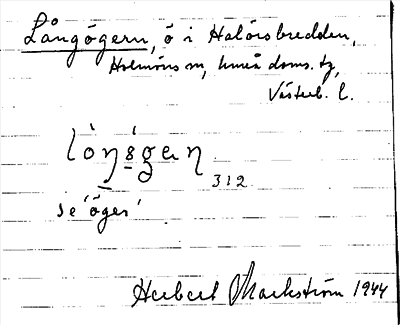 Långögern, ö i Halörsbredden,
Holmöns sn, Umeå doms. tg,
Västerb. l.
lòŋ̠s̠ǵgaɳ
312
se 'öger'
Herbert Markström 1944